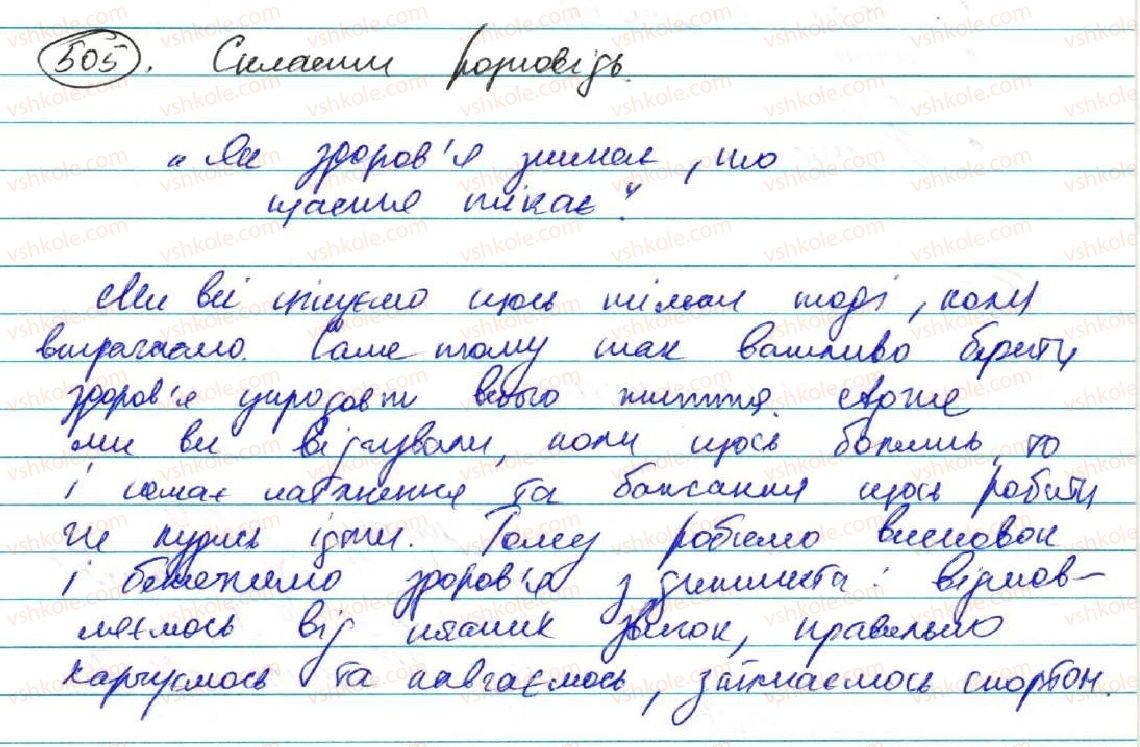 505. Скласти розповідь.
„Як здоров'я зникає, то
щастя тікає“.
Ми всі цінуємо щось тільки тоді, коли
втрачаємо. Саме тому так важливо берегти
здоров'я упродовж всього життя. Адже
ми всі відчували, коли щось болить, то
і немає натхнення та бажання щось робити
чи кудись іти. Тому робимо висновок
і бережемо здоров'я з дитинства: відмов-
ляємось від шкідливих звичок, правильно
харчуємось та навчаємось, займаємось спортом.